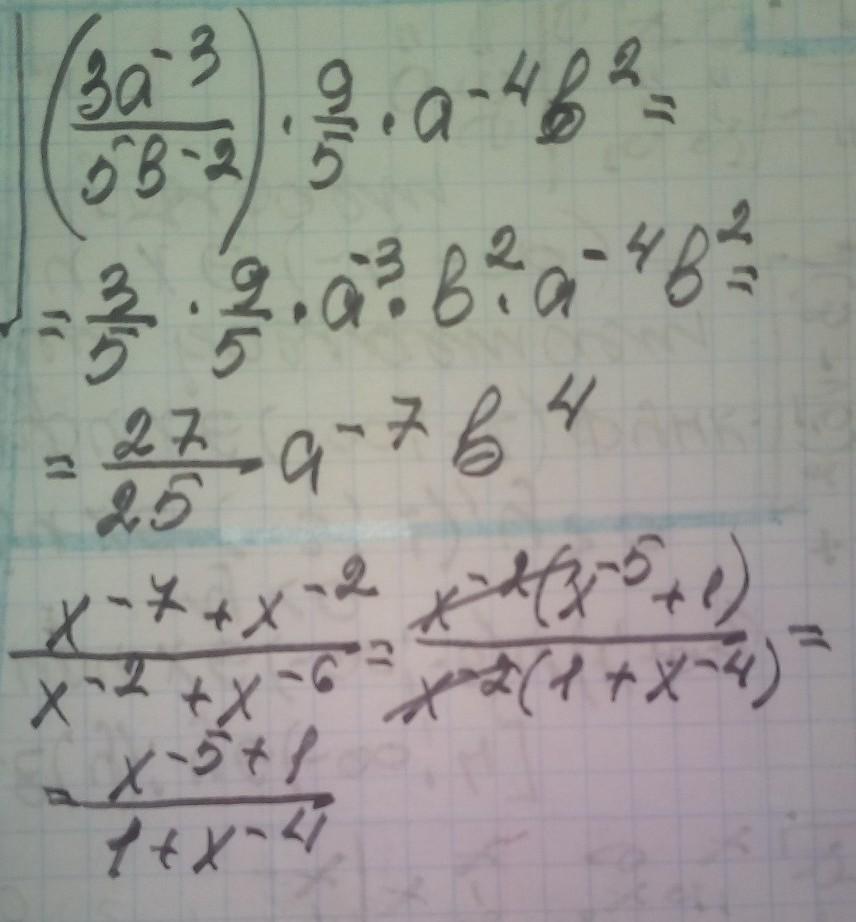 (3a⁻³/5b⁻²) · 9/5 · a⁻⁴b² =
= 3/5 · 9/5 · a⁻³ · b² · a⁻⁴b² =
= 27/25 a⁻⁷b⁴
x⁻⁷ + x⁻² / x⁻² + x⁻⁶ = x⁻²(x⁻⁵ + 1) / x⁻²(1 + x⁻⁴) =
= x⁻⁵ + 1 / 1 + x⁻⁴